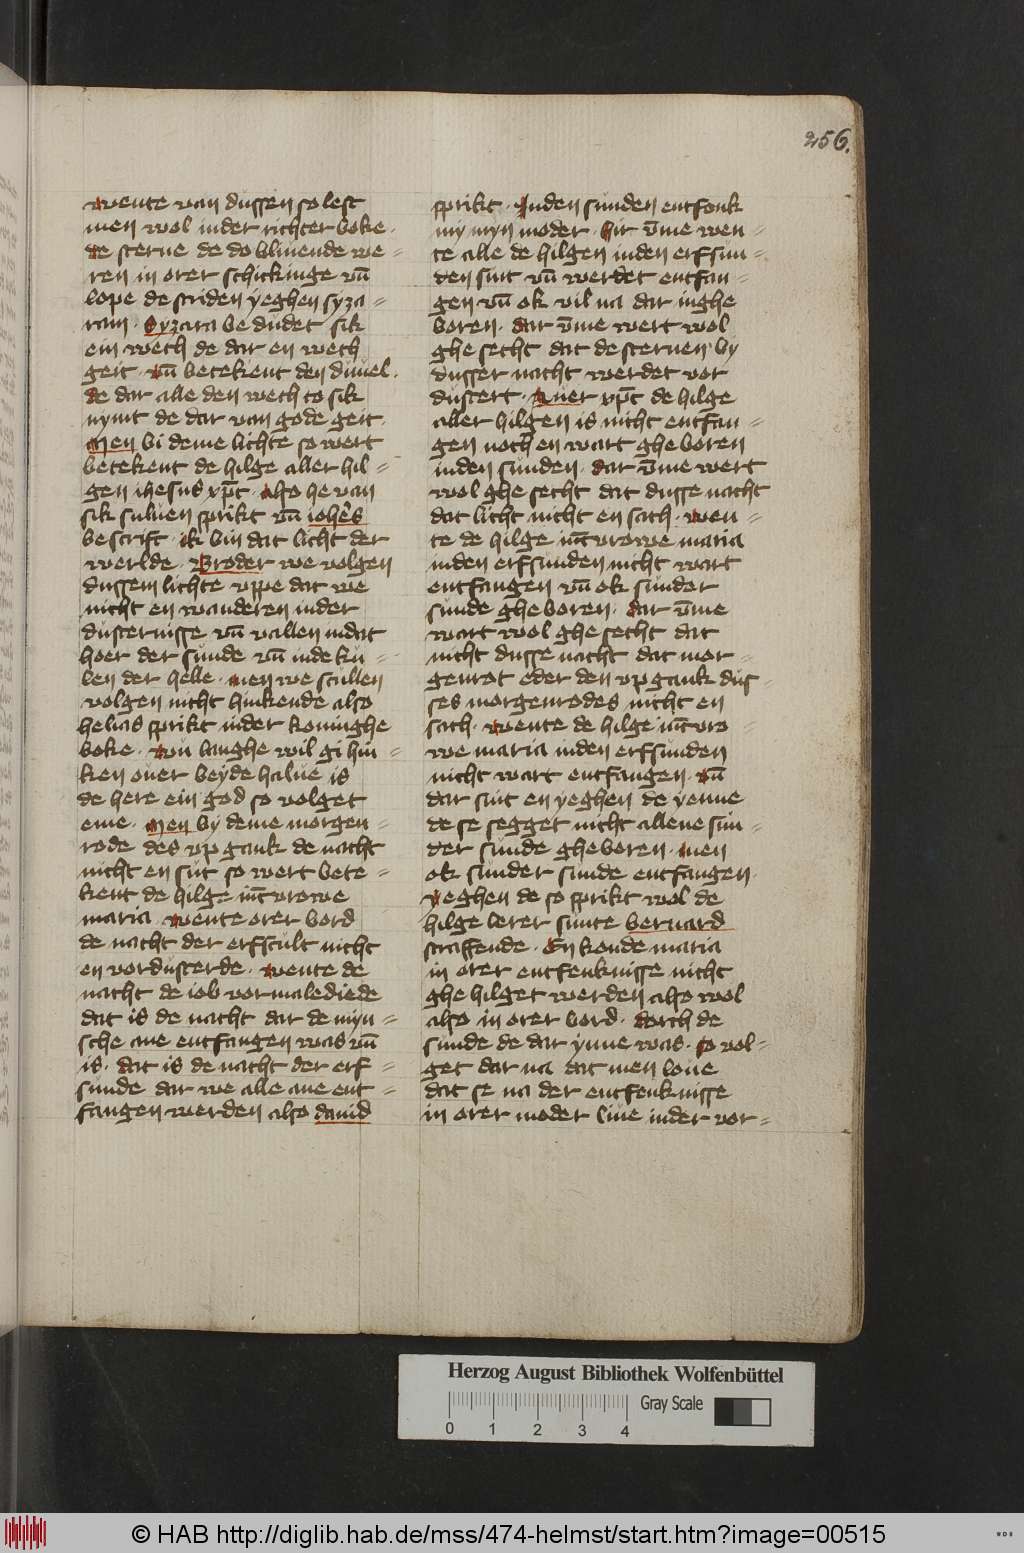 256.
wente van dussen so lest
men wol inder richter boke ·
de sterne de do bliuende we =
ren in orer schickinge vn̄
lope de striden yeghen syza =
ram · Syzara bedudet sik
ein wech de dar en wech
geit · vn̄ betekent den duuel ·
de dar alle den wech to sik
nymt de dar van gode geit ·
Men bi deme lichte so wert
betekent de hilge aller hil =
gen ihesus xp̄c · Also he van
sik suluen sprikt vn̄ iohēs
bescrift · ik bin dat licht der
werlde · Broder we volgen
dussem lichte vppe dat we
nicht en wanderen inder
dusternisse vn̄ vallen indat
hoer der sunde vn̄ inde ku =
len der helle · men we scullen
volgen nicht hinkende also
helias sprikt inder koninghe
boke · wu langhe wil gi hin =
ken ouer beyde halue is
de here ein god so volget
eme · Men by deme morgen =
rode des vp gank de nacht
nicht en sut so wert bete =
kent de hilge iūcvrowe
maria wente orer bord
de nacht der erfscult nicht
en vordusterde · wente de
nacht de iob vormalediede
dat is de nacht dar de myn =
sche ane entfangen was vn̄
is · dat is de nacht der erf =
sunde dar we alle ane ent =
fangen werden also dauid
sprikt · Inden sunden entfenk
my myn moder · hir v̄me wen =
te alle de hilgen inden erfsun =
den sint vn̄ werdet entfan =
gen vn̄ ok vil na dar inghe
boren · dar v̄me wert wol
ghesecht dat de sternen by
dusser nacht werdet vor
dustert · Auer xp̄c de hilge
aller hilgen is nicht entfan =
gen noch en wart gheboren
inden sunden · dar v̄me wert
wol ghesecht dat dusse nacht
dat licht nicht en sach · wen =
te de hilge iūcvrowe maria
inden erfsunden nicht wart
entfangen vn̄ ok sunder
sunde gheboren · dar v̄me
wart wol ghesecht dat
nicht dusse nacht dat mor =
genrot eder den vpgank dus =
ses morgenrodes nicht en
sach · wente de hilge iūcvro =
we maria inden erfsunden
nicht wart entfangen · vn̄
dar sint en yeghen de yenne
de se segget nicht allene sun =
der sunde gheboren · men
ok sunder sunde entfangen ·
yeghen de so sprikt wol de
hilge lerer sunte bernard
straffende · En konde maria
in orer entfenknisse nicht
ghehilget werden also wol
also in orer bord · dorch de
sunde de dar ynne was · so vol =
get dar na dat men loue
dat se na der entfenknisse
in orer moder liue inder vor =
Herzog August Bibliothek Wolfenbüttel
0 1 2 3 4
Gray Scale
© HAB http://diglib.hab.de/mss/474-helmst/start.htm?image=00515
WDB